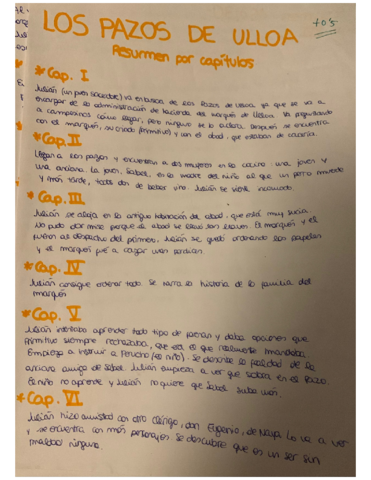 LOS PAZOS DE ULLOA
Resumen por capítulos
*Cap. I
Julián (un joven sacerdote) va en busca de los Pazos de Ulloa, ya que se va a
encargar de la administración de hacienda del marqués de Ulloa. Va preguntando
a campesinos cómo llegar, pero ninguno se lo aclara. Después se encuentra
con el marqués, su criado (Primitivo) y con el abad, que estaban de cacería.
*Cap. II
Llegan a los pazos y encuentran a dos mujeres en la cocina: una joven y
una anciana. La joven, Sabel, es la madre del niño al que un perro muerde
y más tarde, todos dan de beber vino. Julián se siente incómodo.
*Cap. III
Julián se aloja en la antigua habitación del abad, que está muy sucia.
No pudo dormir porque el abad se llevó las llaves. El marqués y él
fueron al despacho del primero, Julián se quedó ordenando los papeles
y el marqués fue a cazar unas perdices.
*Cap. IV
Julián consigue ordenar todo. Se narra la historia de la familia del
marqués
*Cap. V
Julián intentaba aprender todo tipo de faenas y daba opciones que
Primitivo siempre rechazaba, que era el que realmente mandaba.
Empieza a instruir a Perucho (el niño). Se describe la realidad de la
anciana amiga de Sabel. Julián empieza a ver que sobra en el Pazo.
El niño no aprende y Julián no quiere que Sabel suba más.
*Cap. VI
Julián hizo amistad con otro clérigo, don Eugenio, de Naya. Lo va a ver
y se encuentra con más personajes. Se descubre que es un ser sin
maldad ninguna.